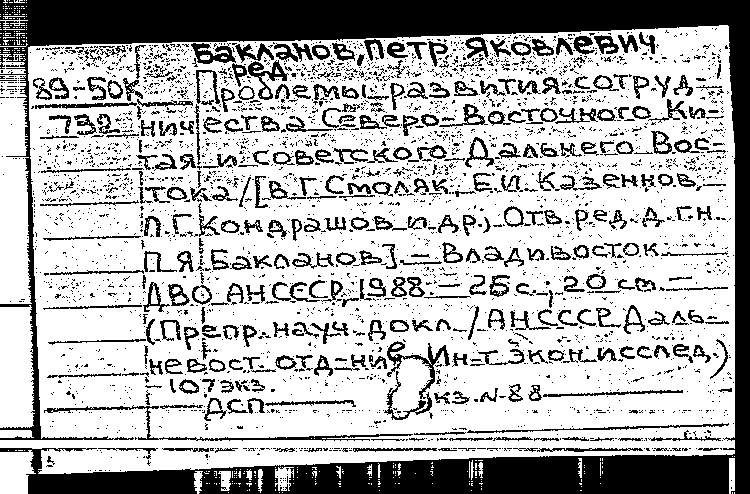 Бакланов, Петр Яковлевич
ред.
89-50к Проблемы развития сотруд-
732 ничества Северо-Восточного Ки-
тая и советского Дальнего Вос-
тока / [В.Г. Смоляк, Е.И. Казеннов,
П.Г. Кондрашов и др., Отв. ред. д.г.н.
П.Я. Бакланов]. – Владивосток:
ДВО АН СССР, 1988. – 25 с.; 20 см. –
(Препр. науч. докл. / АН СССР, Даль-
невост. отд-ние, Ин-т экон. исслед.)
– 107 экз.
ДСП Экз. N-88